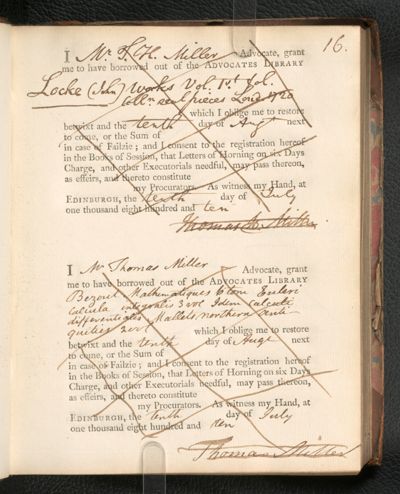 16.
I Mr. T. H. Miller Advocate, grant
me to have borrowed out of the ADVOCATES LIBRARY
Locke (John) Works Vol. 1st fol.
Colln. several pieces Lond. 1720
which I oblige me to restore
betwixt and the tenth day of Augt next
to come, or the Sum of
in case of Failzie; and I consent to the registration hereof
in the Books of Session, that Letters of Horning on six Days
Charge, and other Executorials needful, may pass thereon,
as effeirs, and thereto constitute
my Procurators. As witness my Hand, at
EDINBURGH, the tenth day of July
one thousand eight hundred and ten
Thomas H. Miller.
I Mr Thomas Miller Advocate, grant
me to have borrowed out of the ADVOCATES LIBRARY
Bezout Mathematiques 6 tom Euleri
Calculi integralis 3 vol Idem Calculi
differentialis Mallets northern anti-
quities 2 vol which I oblige me to restore
betwixt and the tenth day of Augt next
to come, or the Sum of
in case of Failzie; and I consent to the registration hereof
in the Books of Session, that Letters of Horning on six Days
Charge, and other Executorials needful, may pass thereon,
as effeirs, and thereto constitute
my Procurators. As witness my Hand, at
EDINBURGH, the tenth day of July
one thousand eight hundred and ten
Thomas Miller